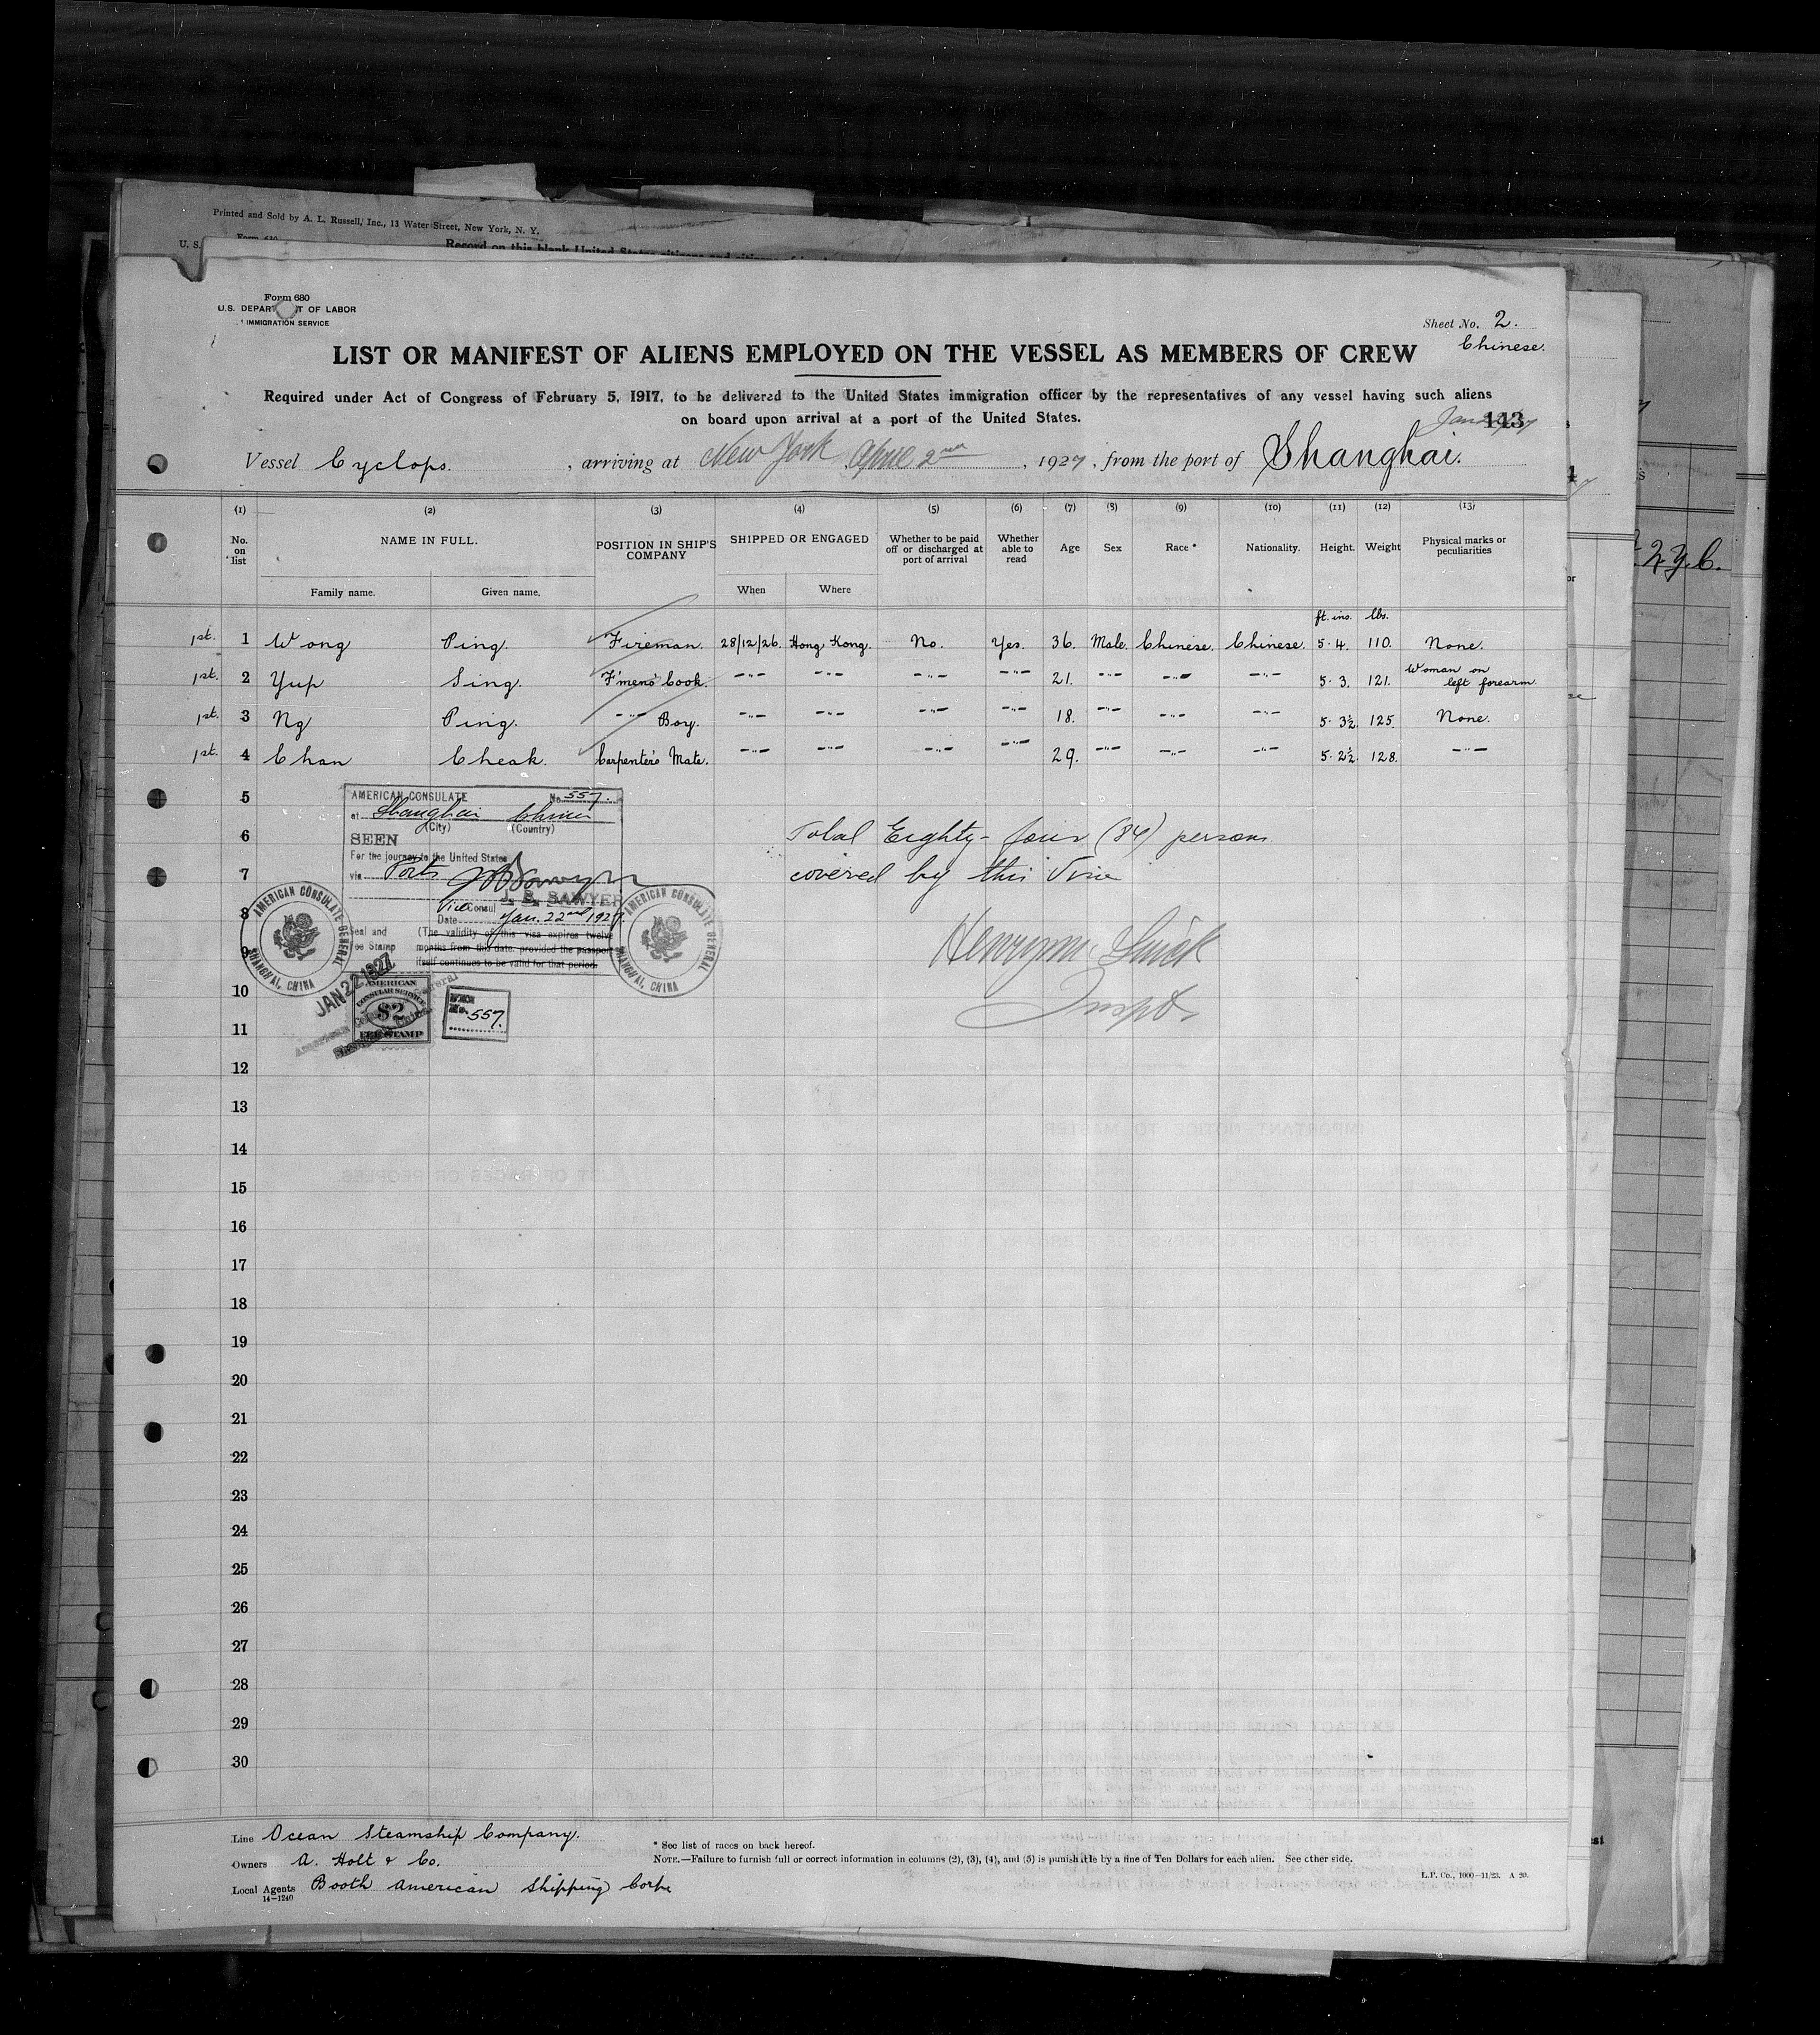 Printed and Sold by A. L. Russell, Inc., 13 Water Street, New York, N. Y.
U. S.
Form 630
Record on this blank United States citizens and citizens of
Form 680
U.S. DEPAR T OF LABOR
IMMIGRATION SERVICE
Sheet No. 2.
Chinese.
LIST OR MANIFEST OF ALIENS EMPLOYED ON THE VESSEL AS MEMBERS OF CREW
Required under Act of Congress of February 5, 1917, to be delivered to the United States immigration officer by the representatives of any vessel having such aliens
on board upon arrival at a port of the United States.
143
Vessel Cyclops. , arriving at New York April 2nd , 1927, from the port of Shanghai.
(1) (2) (3) (4) (5) (6) (7) (8) (9) (10) (11) (12) (13)
No. on list NAME IN FULL. POSITION IN SHIP'S COMPANY SHIPPED OR ENGAGED Whether to be paid off or discharged at port of arrival Whether able to read Age Sex Race * Nationality. Height. Weight Physical marks or peculiarities
Family name. Given name. When Where
ft. ins. lbs.
1st. 1 Wong Ping. Fireman. 28/12/26. Hong Kong. No. Yes. 36. Male. Chinese. Chinese. 5. 4. 110. None.
1st. 2 Yup Sing. F'mens' Cook. -"- -"- -"- -"- 21. -"- -"- -"- 5. 3. 121. Woman on left forearm.
1st. 3 Ng Ping. -"- Boy. -"- -"- -"- -"- 18. -"- -"- -"- 5. 3½. 125. None.
1st. 4 Chan Cheak. Carpenter's Mate. -"- -"- -"- -"- 29. -"- -"- -"- 5. 2½. 128. -"-
5
6
7
8
9
10
11
12
13
14
15
16
17
18
19
20
21
22
23
24
25
26
27
28
29
30
AMERICAN CONSULATE No. 557.
at Shanghai China
(City) (Country)
SEEN
For the journey to the United States
via Ports
J. B. SAWYER
Vice Consul
Date Jan. 22nd 1927.
Seal and
Fee Stamp
(The validity of this visa expires twelve
months from this date, provided the passport
itself continues to be valid for that period.
AMERICAN CONSULATE GENERAL
SHANGHAI, CHINA
AMERICAN CONSULATE GENERAL
SHANGHAI, CHINA
JAN 22 1927
AMERICAN
CONSULAR SERVICE
$2
FEE STAMP
No. 557.
Total Eighty-four (84) persons
covered by this Visa
Inspt.
Line Ocean Steamship Company.
Owners A. Holt & Co.
Local Agents Booth American Shipping Corpn
14—1240
* See list of races on back hereof.
NOTE.—Failure to furnish full or correct information in columns (2), (3), (4), and (5) is punishable by a fine of Ten Dollars for each alien. See other side.
L.P. Co., 1000—11/23. A 20.